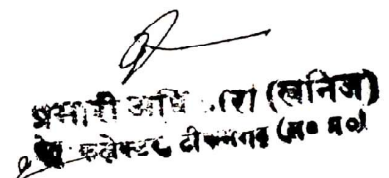 प्रभारी अधिकारी (खनिज)
कलेक्टर टीकमगढ़ (म० प्र०)